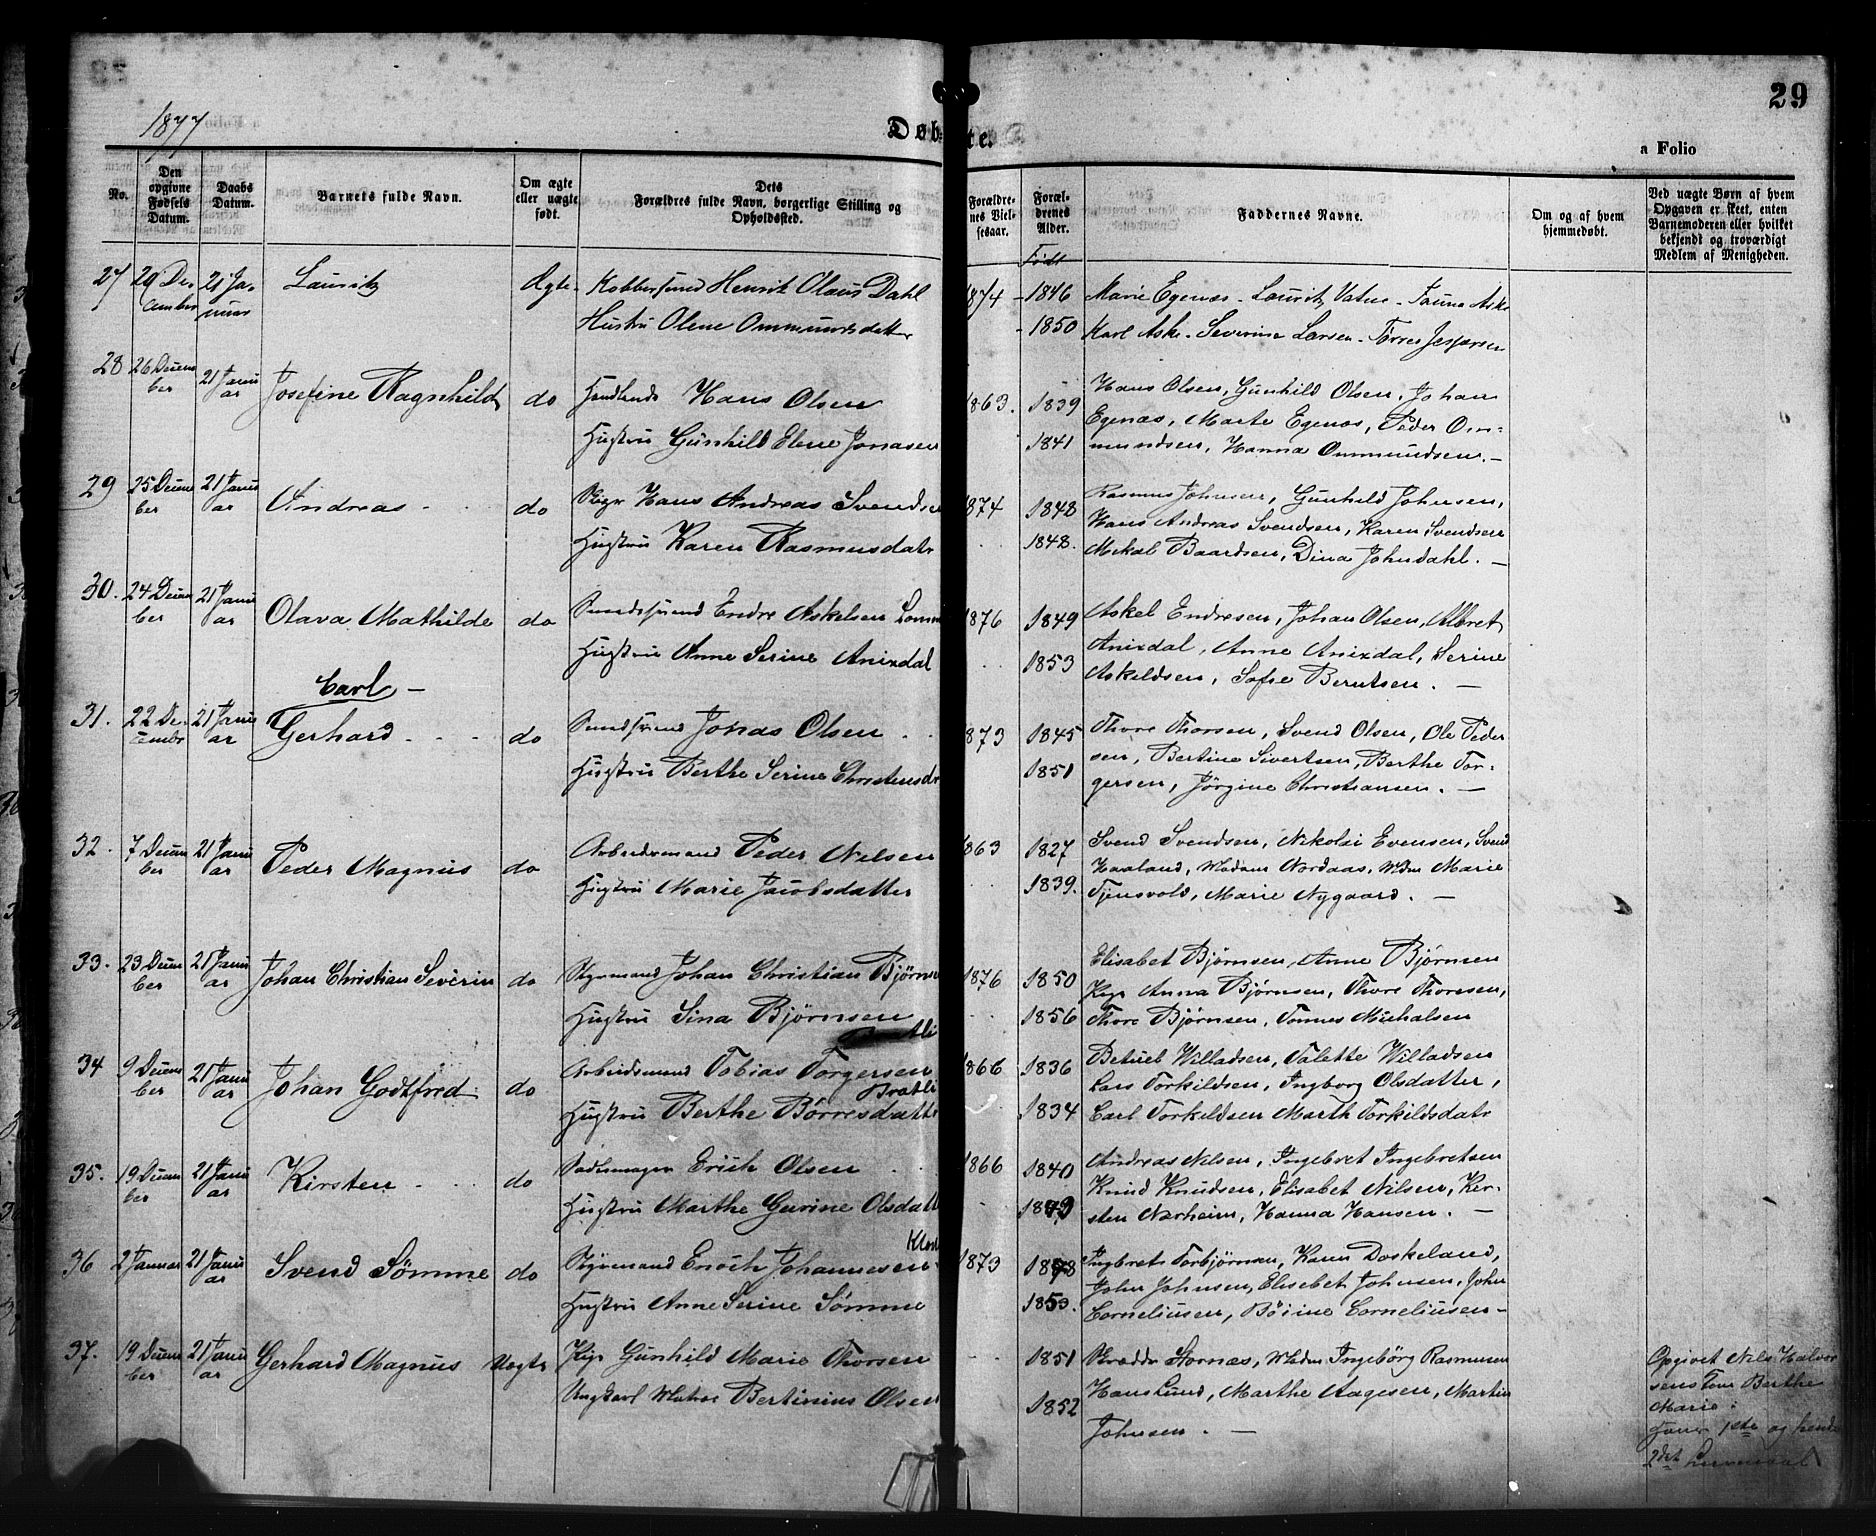 29
1877
Døbte.
a Folio
No.
Den opgivne Fødsels Datum.
Daabs Datum.
Barnets fulde Navn.
Om ægte eller uægte født.
Dets Forældres fulde Navn, borgerlige Stilling og Opholdsted.
Forældrenes Vielsesaar.
Forældrenes Alder.
Faddernes Navne.
Om og af hvem hjemmedøbt.
Ved uægte Børn af hvem Opgaven er skeet, enten Barnemoderen eller hvilket bekjendt og troværdigt Medlem af Menigheden.
Født
27 29 December 21 Januar Lauritz Ægte Kobbersmed Henrik Olaus Dahl 1874 - 1846 Marie Egenæs - Lauritz Vatne - Aske
Hustru Olene Ommundsdatter - 1850 Karl Aske - Severine Larsen - Tørres Jespersen
28 26 December 21 Januar Josefine Ragnhild do Handlende Hans Olsen 1863. 1839 Hans Olsen, Gunhild Olsen, Johan
Hustru Gunhild Elene Jonasen 1841 Egenæs, Marte Egenæs, Peder Om-
mundsen, Hanna Ommundsen. -
29 25 December 21 Januar Andreas do Hans Andreas Svendsen 1874 1848 Rasmus Johnsen, Gunhild Johnsen,
Hustru Karen Rasmusdatr 1848. Hans Andreas Svendsen, Karen Svendsen
Mikal Baardsen, Dina Johndahl. -
30. 24 December 21 Januar Olava Mathilde do Endre Askelsen 1876 1849 Askel Endresen, Johan Olsen, Albret
Hustru Anne Serine Anixdal 1853 Anixdal, Anne Anixdal, Serine
Askeldsen, Sofie Berntsen. -
Carl -
31. 22 December 21 Januar Gerhard do Jonas Olsen 1873 1845 Thore Thorsen, Svend Olsen, Ole Peder
Hustru Berthe Serine Christensdr 1851 sen, Bertine Sivertsen, Berthe Tor-
gersen, Jørgine Christiansen. -
32. 7 December 21 Januar Peder Magnus do Arbeidsmand Peder Nelsen 1863 1827 Svend Svendsen, Nikolai Evensen, Svend
Hustru Marie Jacobsdatter 1839. Haaland, Madam Nordaas, Mdm Marie
Tjensvold, Marie Nygaard. -
33. 23 December 21 Januar Johan Christian Severin do Styrmand Johan Christian Bjørnsen 1876 1850 Elisabet Bjørnsen, Anne Bjørnsen
Hustru Sina Bjørnsen 1856 Pige Anna Bjørnsen, Thore Thoresen,
Thore Bjørnsen, Tønnes Michalsen
34 9 December 21 Januar Johan Godtfred do Arbeidsmand Tobias Torgersen Bratli 1866 1836 Betuel Willadsen, Talette Willadsen
Hustru Berthe Børresdatter 1834 Lars Torkildsen, Ingborg Olsdatter,
Carl Torkeldsen Marth Torkildsdatr
35. 19 December 21 Januar Kirsten do Sadelmager Erich Olsen 1866 1840 Andreas Nelsen, Ingebret Ingebretsen
Hustru Marthe Gurine Olsdatt 1843 Knud Knudsen, Elisabet Nilsen, Ker-
sten Narheim, Hanna Hansen. -
36 2 Januar 21 Januar Svend Sömme do Styrmand Enoch Johannesen 1873 1848 Ingbret Torbjørnsen, Karen Doskeland,
Hustru Anne Serine Sömme 1853. John Johnsen, Elisebet Johnsen, John
Corneliusen, Corneliusen -
37. 19 December 21 Januar Gerhard Magnus Uægte Pige Gunhild Marie Thorsen 1851 Skrædder Stornæs, Madm Ingebørg Rasmusen
Ungkarl Matros Bertinius Olsen 1852 Hans Lund, Marthe Aagesen, Martin
Johnsen. -
Opgivet Nils Halvor
sens Berthe
Marie.
1ste og hendes
2det Leiermaal